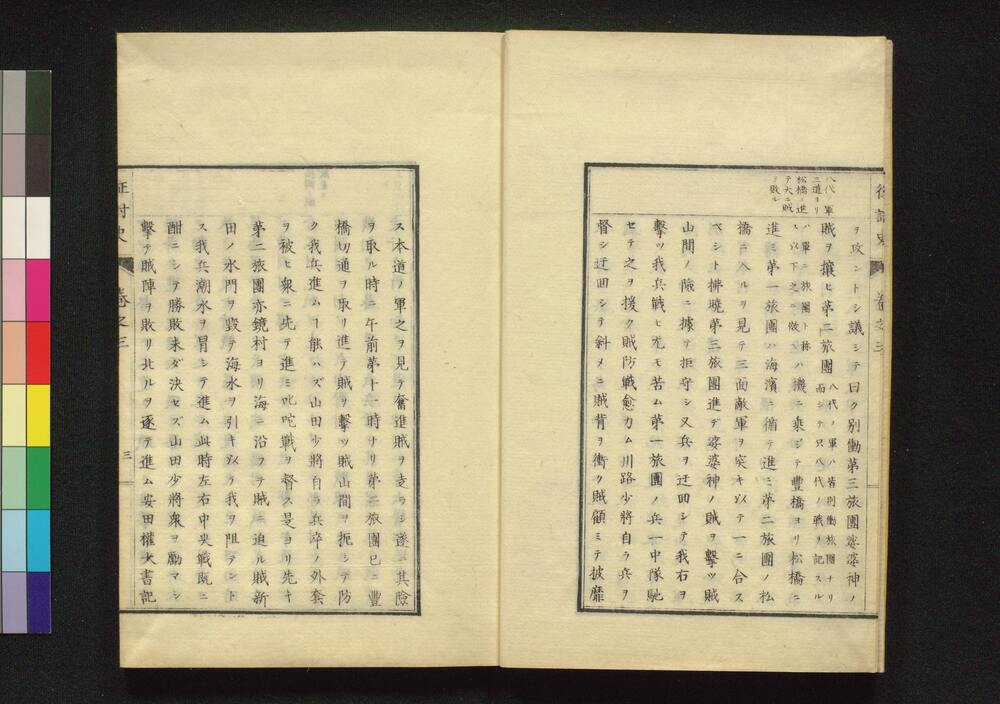 八代ノ軍
三道ヨリ
松橋ニ進
テ大ニ賊
ヲ敗ル
ヲ攻ントシ議シテ曰ク別働第三旅團娑婆神ノ
賊ヲ攘ヒ第二旅團
八代ノ軍ハ皆別働旅團ナリ
而シテ只八代ノ戰ヲ記スル
ハ單ニ旅團ト称
ス以下之ニ倣ヘ
ハ機ニ乘ジテ豊橋ヨリ松橋ニ
進ミ第一旅團ハ海濱ニ循テ進ミ第二旅團ノ松
橋ニ入ルヲ見テ三面敵軍ヲ突キ以テ一ニ合ス
ベシト拂曉第三旅團進デ娑婆神ノ賊ヲ擊ツ賊
山間ノ險ニ據テ拒守シ又兵ヲ迂回シテ我右ヲ
擊ツ我兵戰ヒ尤モ苦ム第一旅團ノ兵一中隊馳
セテ之ヲ援ク賊防戰愈力ム川路少將自ラ兵ヲ
督シ迂回シテ斜メニ賊背ヲ衝ク賊顧ミテ披靡
ス本道ノ軍之ヲ見テ奮進賊ヲ走ラシ遂ニ其險
ヲ取ル時ニ午前第十一時ナリ第二旅團已ニ豊
橋切通ヲ取リ進テ賊ヲ擊ツ賊山間ヲ扼シテ防
ク我兵進ムヿ能ハズ山田少將自ラ兵卒ノ外套
ヲ被ヒ衆ニ先テ進ミ叱咤戰ヲ督ス是ヨリ先キ
第二旅團亦鏡村ヨリ海ニ沿フテ賊ニ迫ル賊新
田ノ水門ヲ毀テ海水ヲ引キ以テ我ヲ阻テント
ス我兵潮水ヲ冒シテ進ム此時左右中央戰既ニ
酣ニシテ勝敗未ダ決セズ山田少將衆ヲ勵マシ
擊テ賊陣ヲ敗リ北ルヲ逐テ進ム安田權大書記
征討史
卷之三
三